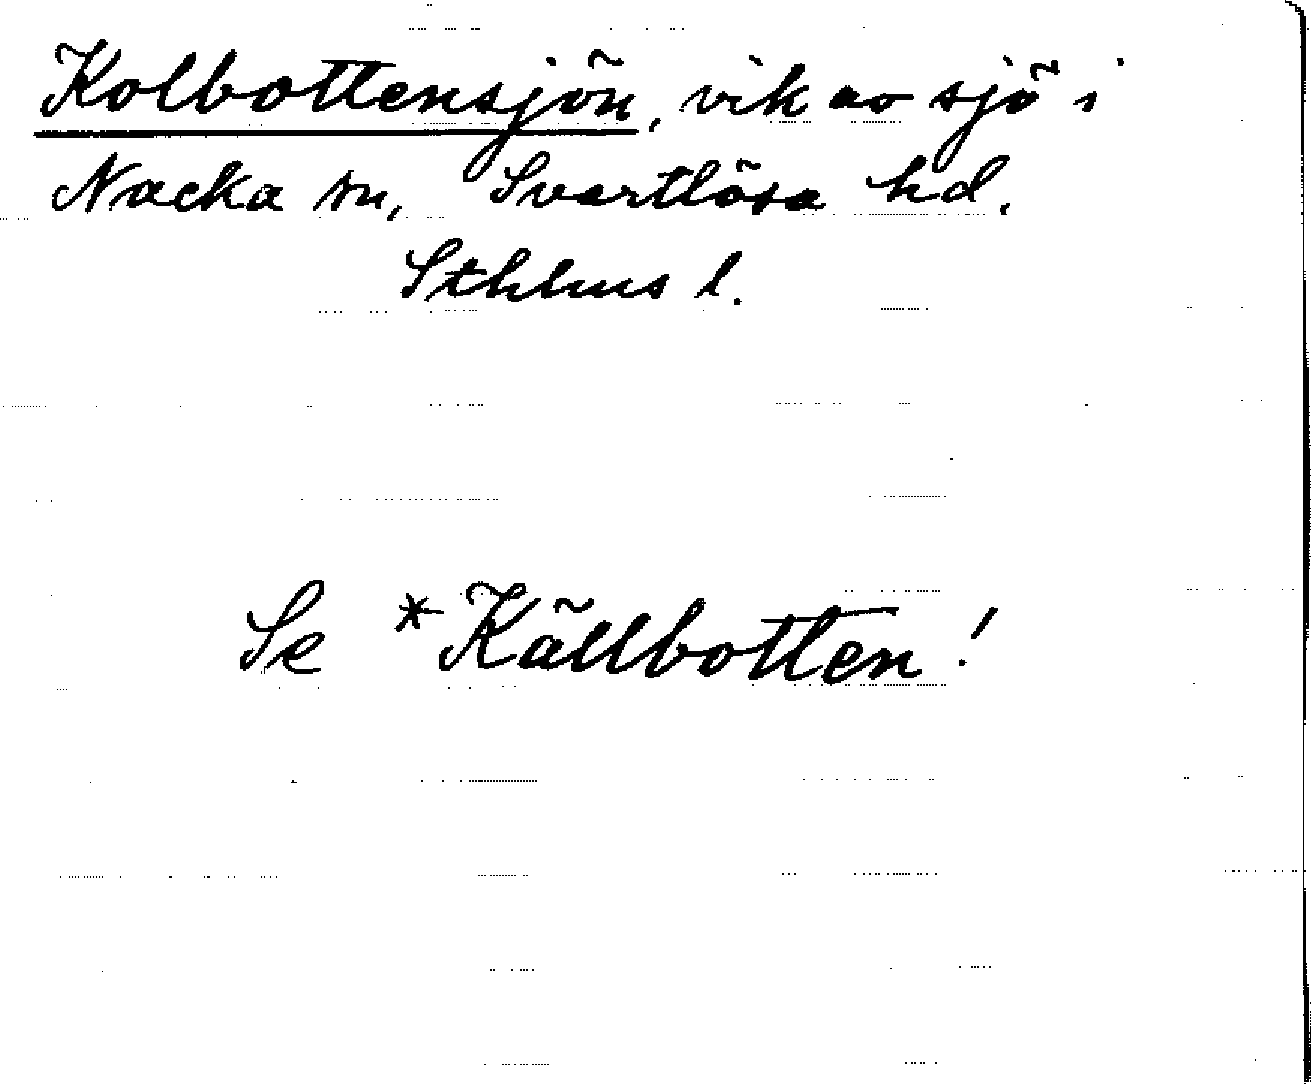 Kolbottensjön, vik av sjö i
Nacka sn, Svartlösa hd.
Sthlms l.
Se *Källbotten!